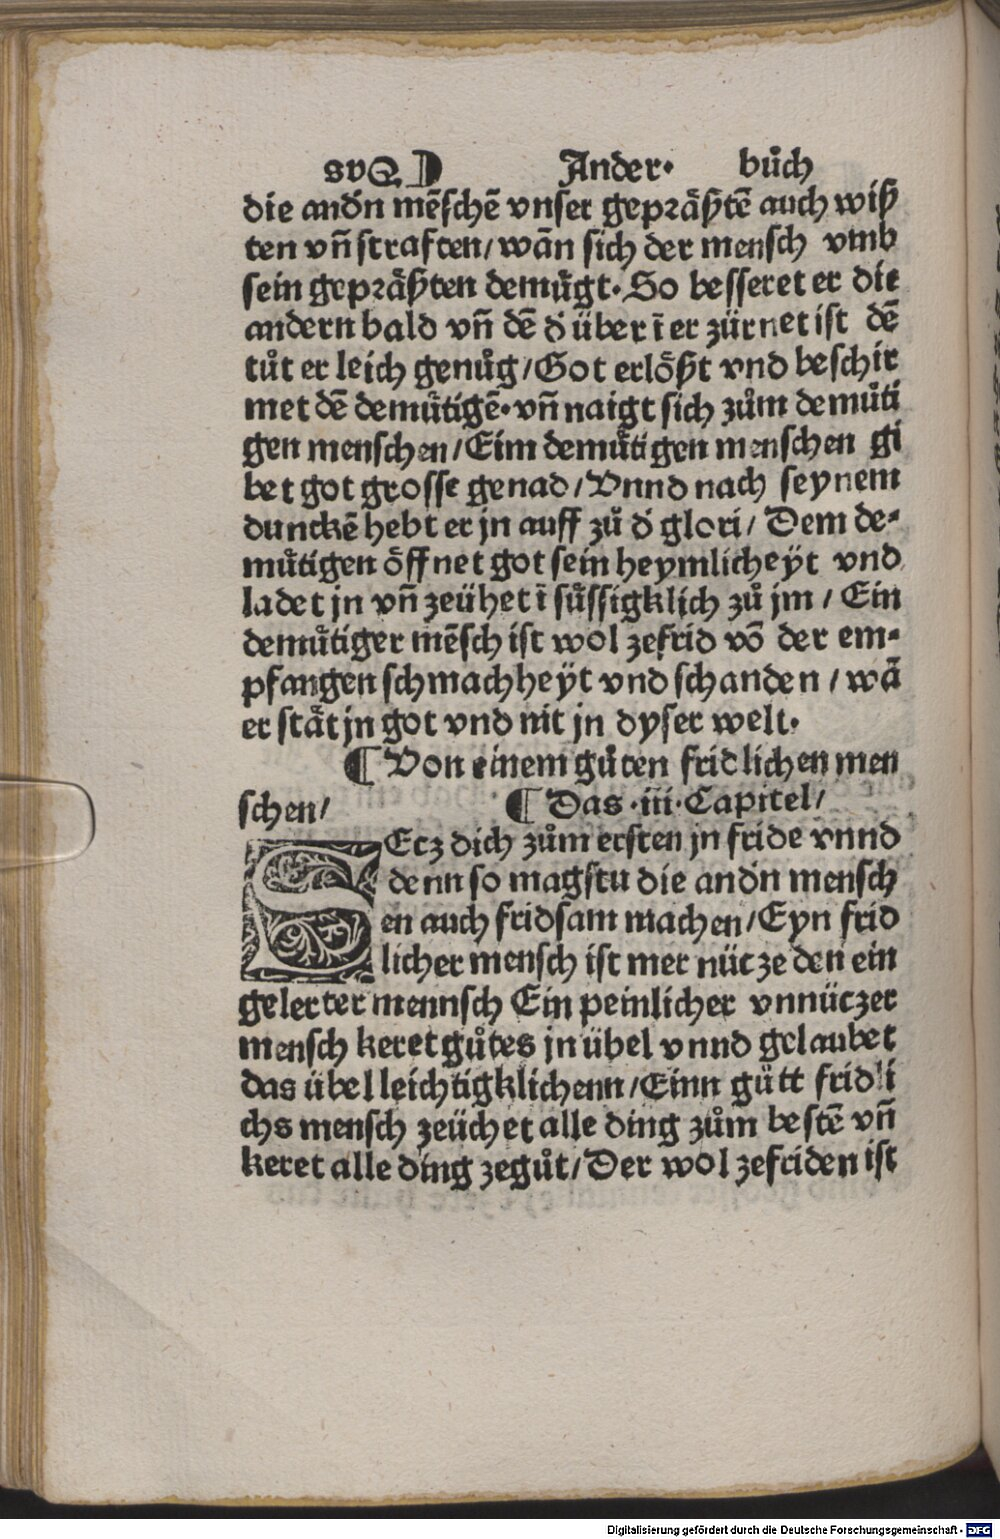 Das Ander. bůch
die andn̄ mēschē vnser gepräßtē auch wiß
ten vn̄ straften/ wān sich der mensch vmb
sein gepräßten demu̍gt. So besseret er die
andern bald vn̄ dē d̓ über ī er zürnet ist dē
tůt er leich genůg/ Got erlößt vnd beschir
met dē demu̍tigē. vn̄ naigt sich zům demůti
gen menschen/ Eim demu̍tigen menschen gi
bet got grosse genad/ Vnnd nach seynem
dunckē hebt er jn auff zů d̓ glori/ Dem de⸗
mu̍tigen öffnet got sein heymlicheyt vnd
ladet jn vn̄ zeühet ī su̍ssigklich zů jm/ Ein
demu̍tiger mēsch ist wol zefrid vō der em⸗
pfangen schmachheyt vnd schanden/ wā
er stät jn got vnd nit jn dyser welt.
¶ Von einem gůten fridlichen men
schen/ ¶ Das .iii. Capitel/
SEtz dich zům ersten jn fride vnnd
denn so magstu die andn̄ mensch
en auch fridsam machen/ Eyn frid
licher mensch ist mer nütze den ein
gelerter mennsch Ein peinlicher vnnützer
mensch keret gůtes jn übel vnnd gelaubet
das übel leichtigklichenn/ Einn gütt fridli
chs mensch zeüchet alle ding zům bestē vn̄
keret alle ding zegůt/ Der wol zefriden ist
Digitalisierung gefördert durch die Deutsche Forschungsgemeinschaft - DFG